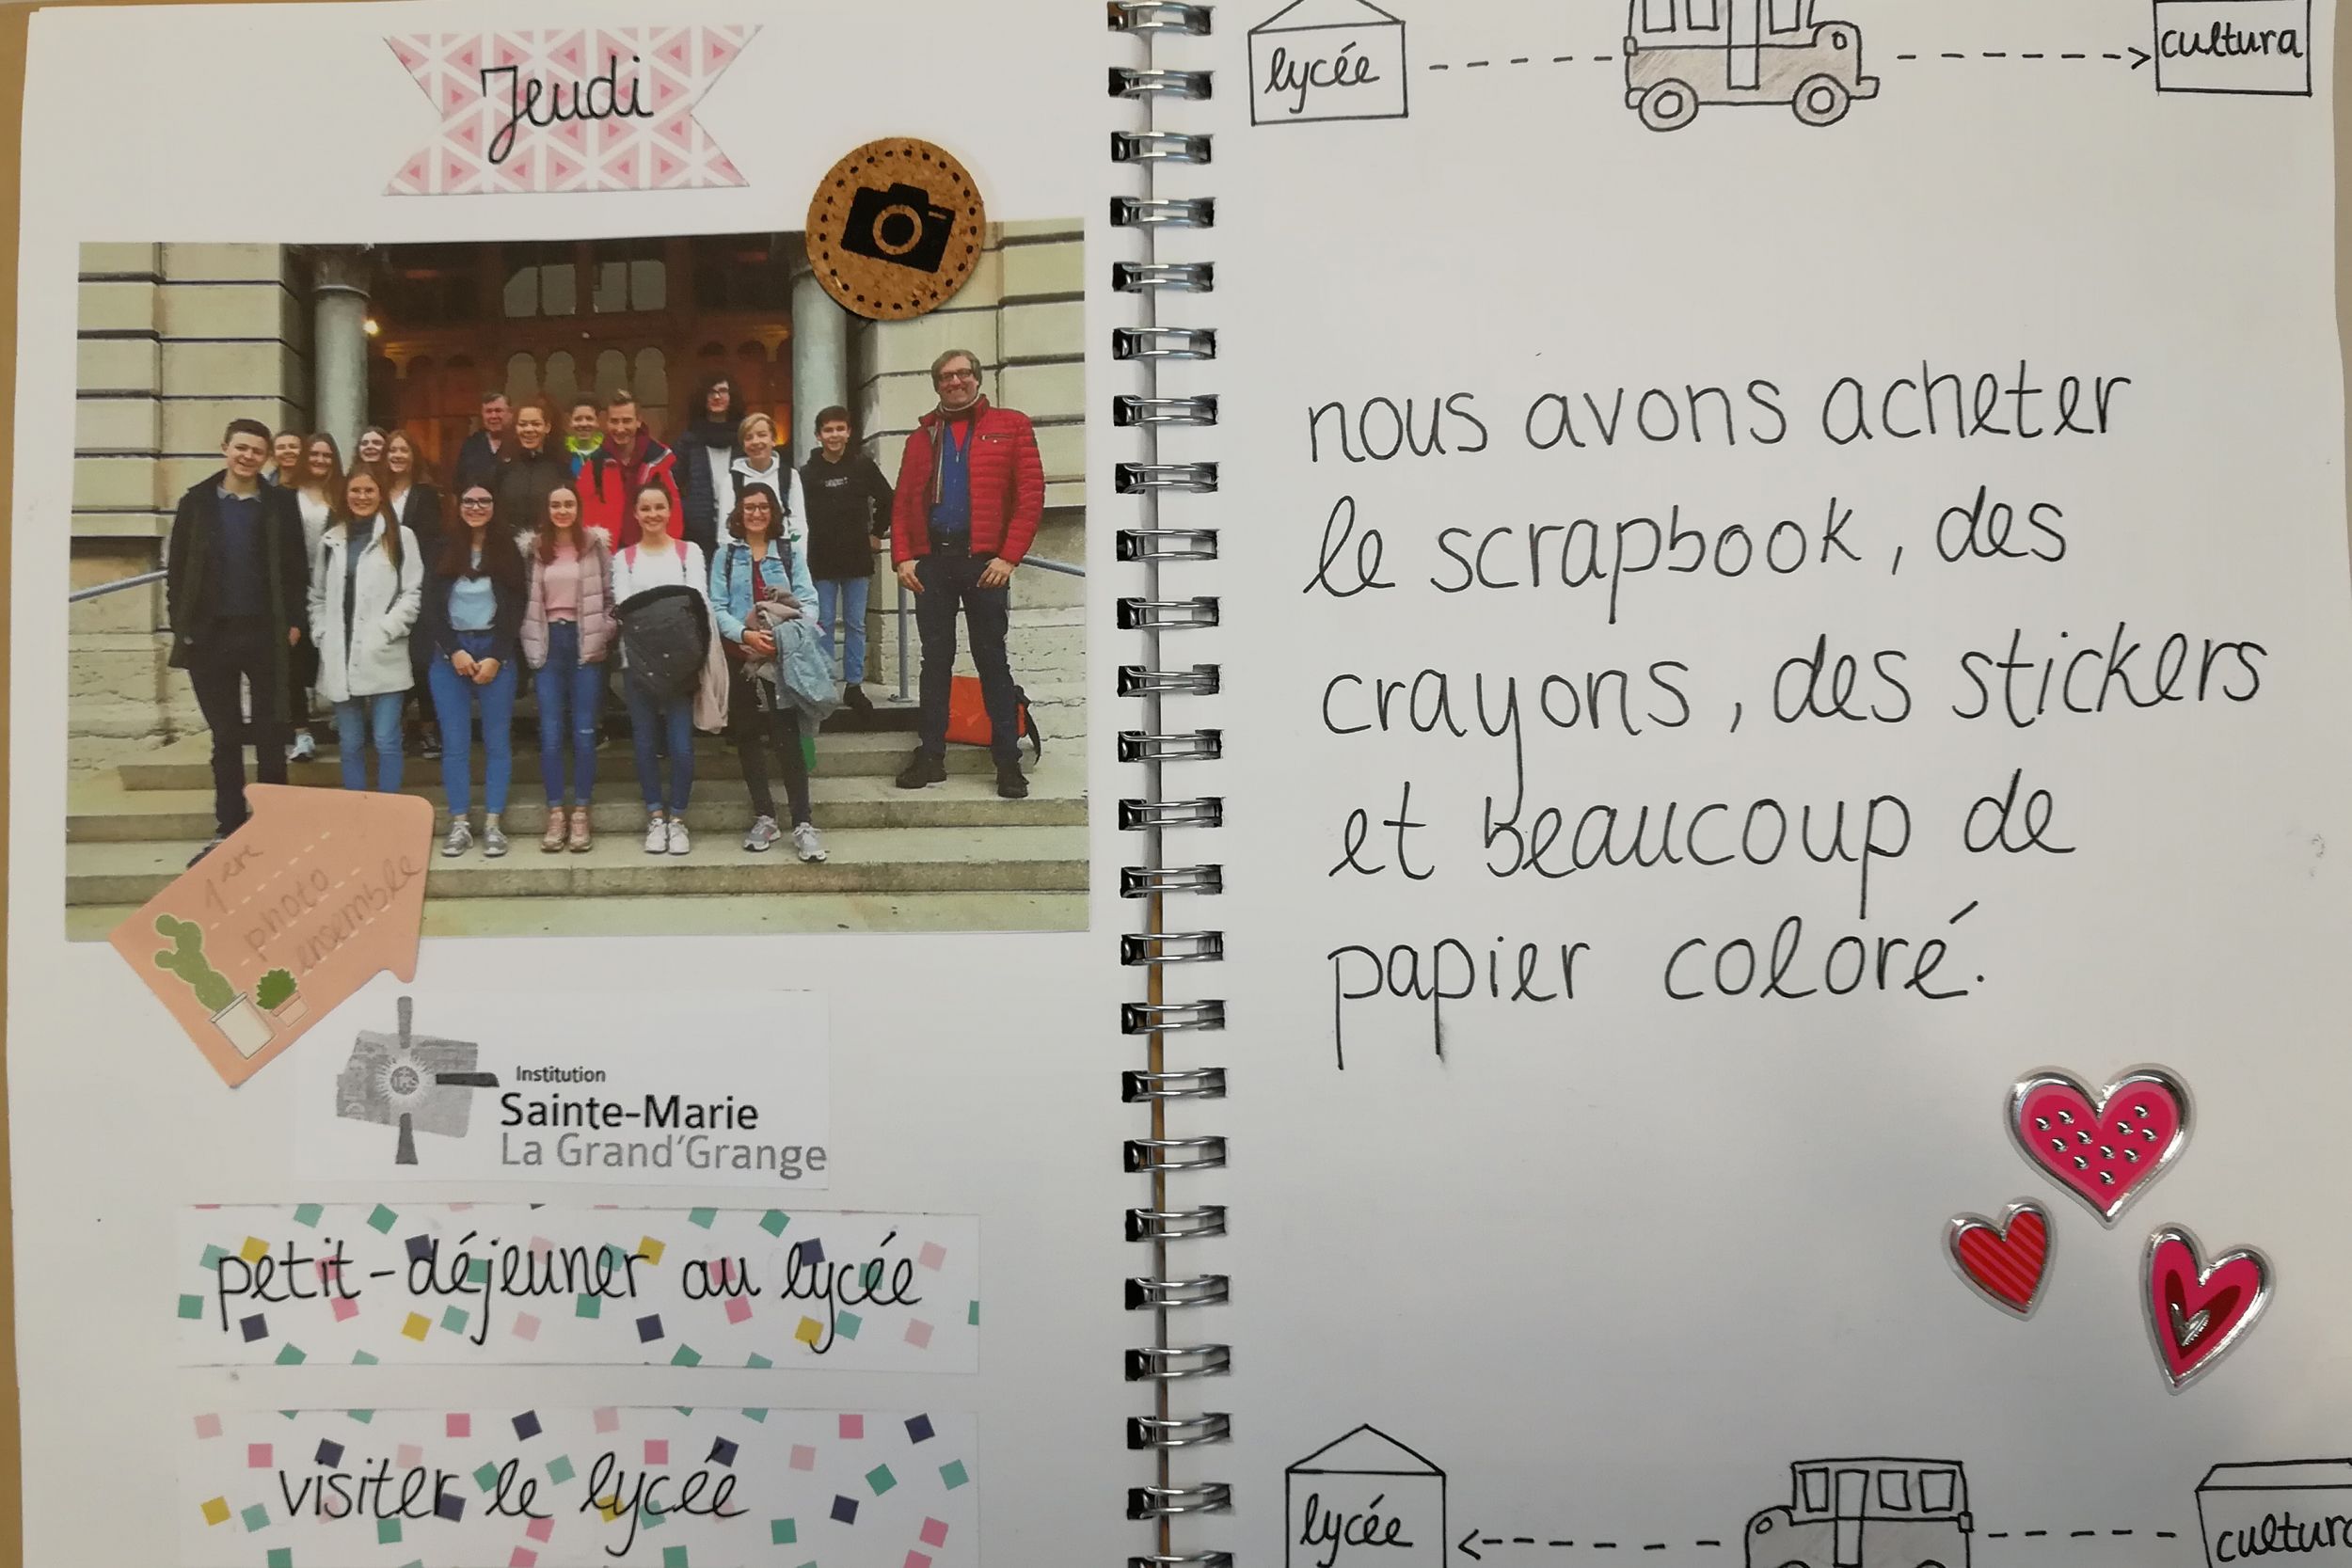 Jeudi
1ère
photo
ensemble
Institution
Sainte-Marie
La Grand'Grange
petit-déjeuner au lycée
visiter le lycée
lycée
cultura
nous avons acheter
le scrapbook, des
crayons, des stickers
et beaucoup de
papier coloré.
lycée
cultura